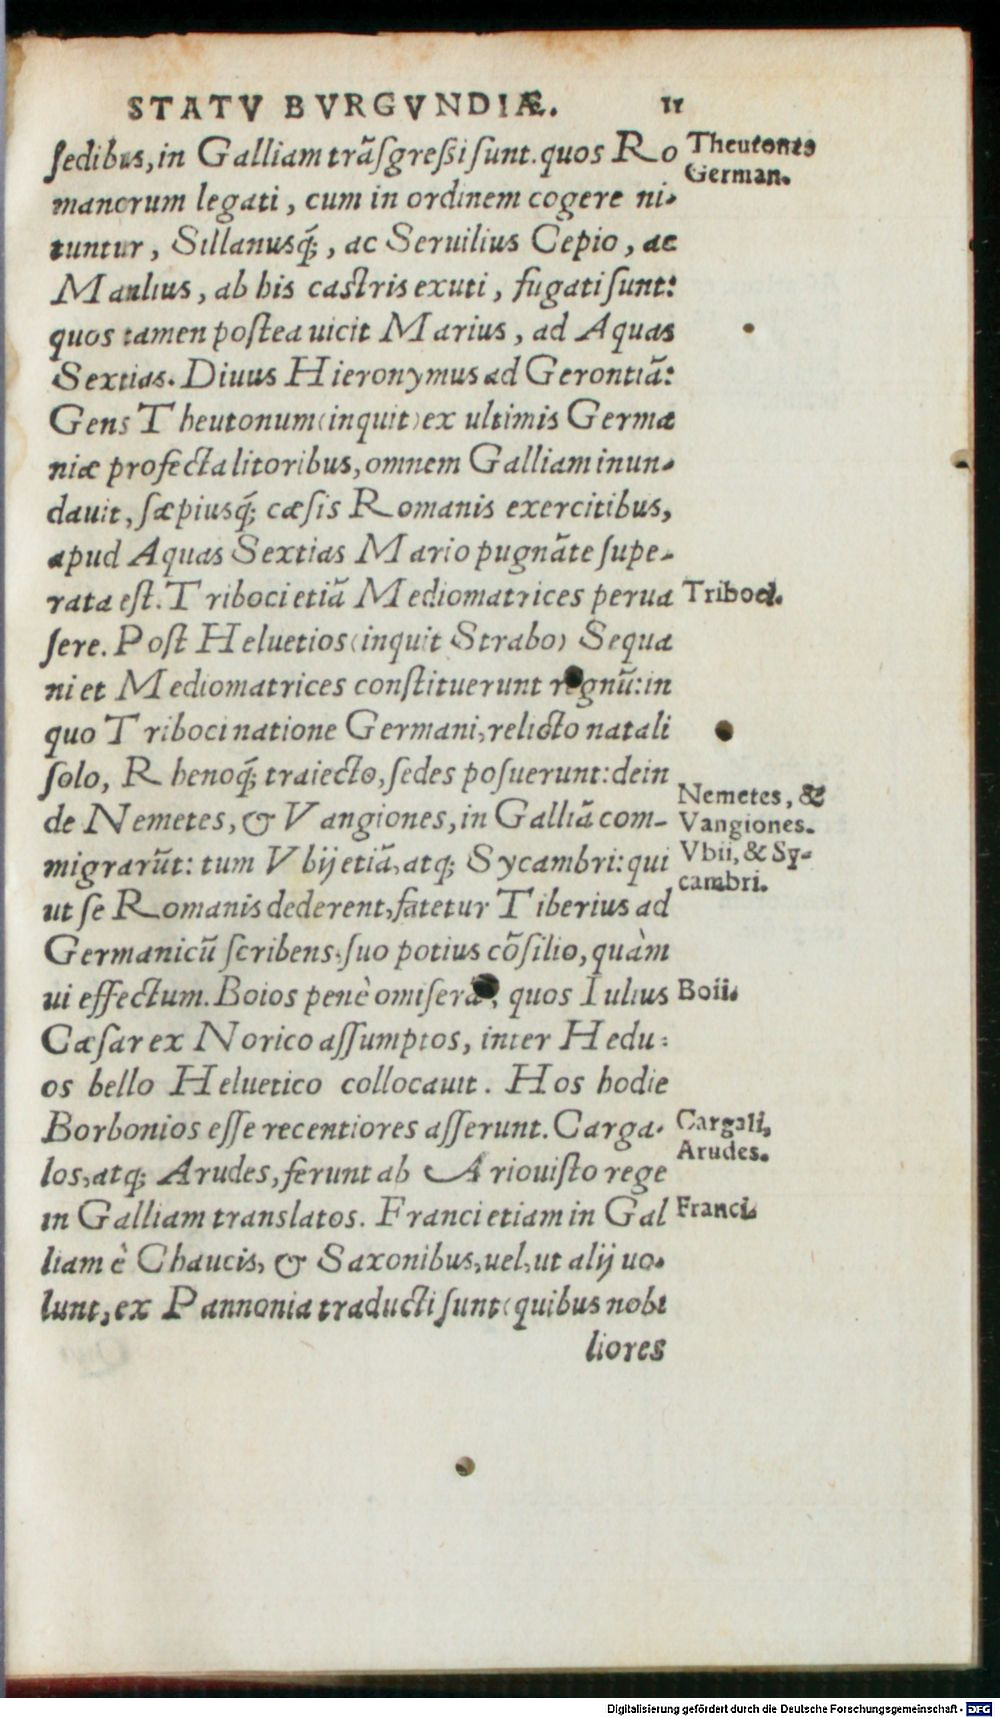 STATV BVRGVNDIÆ. 11
sedibus, in Galliam trãsgressi sunt. quos Ro
manorum legati, cum in ordinem cogere ni-
tuntur, Sillanusq;, ac Seruilius Cepio, ac
Manlius, ab his castris exuti, fugati sunt:
quos tamen postea uicit Marius, ad Aquas
Sextias. Diuus Hieronymus ad Gerontiã:
Gens Theutonum (inquit) ex ultimis Germa
niæ profecta litoribus, omnem Galliam inun-
dauit, sæpiusq; cæsis Romanis exercitibus,
apud Aquas Sextias Mario pugnãte supe-
rata est. Triboci etiã Mediomatrices perua
sere. Post Heluetios (inquit Strabo) Sequa
ni et Mediomatrices constituerunt regnũ: in
quo Triboci natione Germani, relicto natali
solo, Rhenoq; traiecto, sedes posuerunt: dein
de Nemetes, & Vangiones, in Galliã com-
migrarũt: tum Vbij etiã, atq; Sycambri: qui
ut se Romanis dederent, fatetur Tiberius ad
Germanicũ scribens, suo potius cõsilio, quàm
ui effectum. Boios penè omiserã, quos Iulius
Cæsar ex Norico assumptos, inter Hedu-
os bello Heluetico collocauit. Hos hodie
Borbonios esse recentiores asserunt. Carga-
los, atq; Arudes, ferunt ab Ariouisto rege
in Galliam translatos. Franci etiam in Gal
liam è Chaucis, & Saxonibus, uel, ut alij uo-
lunt, ex Pannonia traducti sunt (quibus nobi
liores
Theutones
German.
Triboci.
Nemetes, &
Vangiones.
Vbii, & Sy-
cambri.
Boii.
Cargali,
Arudes.
Franci.
Digitalisierung gefördert durch die Deutsche Forschungsgemeinschaft - DFG